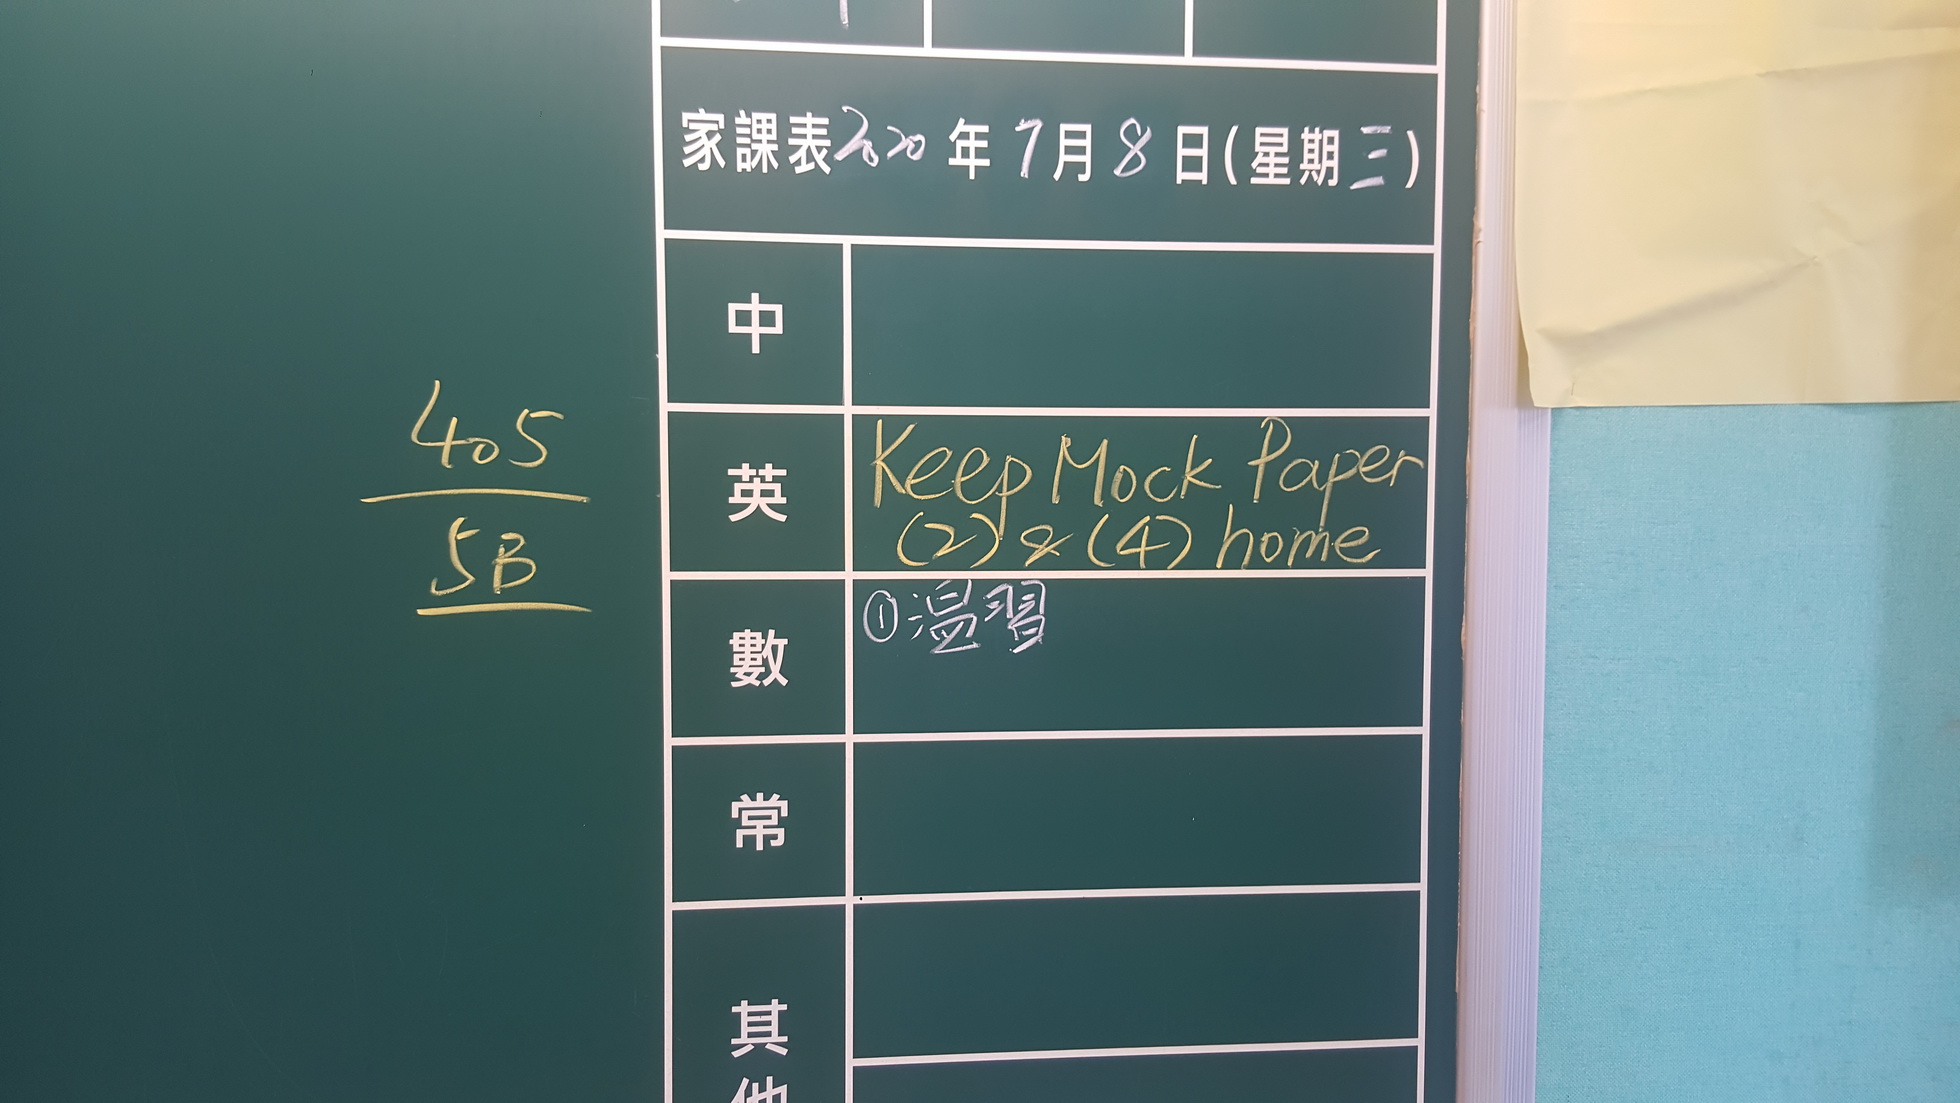 家課表2020年7月8日(星期三)
中
英 Keep Mock Paper
(2) & (4) home
數 ①温習
常
其他
405
5B